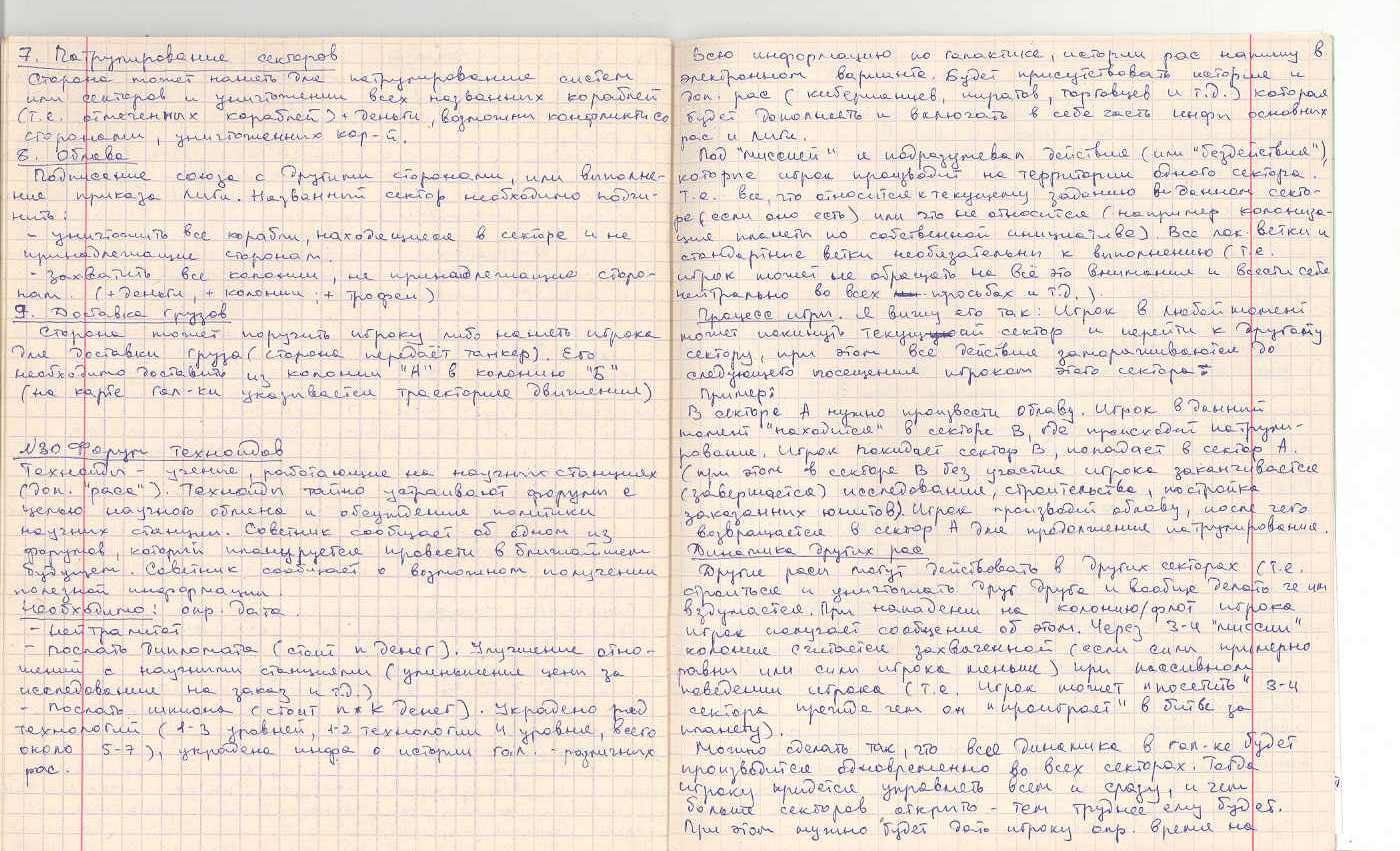 7. Патрулирование секторов
Сторона может нанять для патрулирования систем
или секторов и уничтожении всех названных кораблей
(т.е. отмеченных кораблей) + деньги, возможны конфликты со
сторонами, уничтоженных кор-й.
8. Облава
Подписание союза с другими сторонами, или выполне-
ние приказа Лиги. Названный сектор необходимо подчи-
нить:
- уничтожить все корабли, находящиеся в секторе и не
принадлежащие сторонам.
- захватить все колонии, не принадлежащие сторо-
нам. (+деньги, + колонии, + трофеи)
9. Доставка грузов
Сторона может поручить игроку либо нанять игрока
для доставки груза (сторона передаёт танкер). Его
необходимо доставить из колонии "А" в колонию "Б"
(на карте гал-ки указывается траектория движения)
№30 Форум техноидов
Техноиды - учение, работающие на научных станциях
(доп. "раса"). Техноиды тайно устраивают форумы с
целью научного обмена и обсуждение политики
научных станций. Советник сообщает об одном из
форумов, который планируется провести в ближайшем
будущем. Советник сообщает о возможном получении
полезной информации.
Необходимо: опр. дата.
- нейтралитет
- послать дипломата (стоит n денег). Улучшение отно-
шений с научными станциями (уменьшение цены за
исследование на заказ и т.д.)
- Послать шпиона (стоит n*k денег). Украдено ряд
технологий (1-3 уровней, 1-2 технологии 4 уровня, всего
около 5-7), украдена инфа о истории гал. - различных
рас.
Всю информацию по галактике, истории рас напишу в
электронном варианте. Будет присутствовать история и
доп. рас (киберианцев, пиратов, торговцев и т.д.) которая
будет дополнять и включать в себе часть инфы основных
рас и Лиги.
Под "миссией" я подразумевал действия (или "бездействия"),
которые игрок производит на территории одного сектора.
Т.е. все, что относится к текущему заданию в данном секто-
ре (если оно есть) или это не относится (например колониза-
ция планеты по собственной инициативе). Все лок. ветки и
стандартные ветки необязательны к выполнению (т.е.
игрок может не обращать на всё это внимания и вести себя
нейтрально во всех просьбах и т.д.).
Процесс игры. Я вижу его так: Игрок в любой момент
может покинуть текущий сектор и перейти к другому
сектору, при этом все действия замораживаются до
следующего посещения игроком этого сектора.
Пример:
В секторе А нужно произвести облаву. Игрок в данный
момент "находится" в секторе В, где происходит патрули-
рование. Игрок покидает сектор В, попадает в сектор А.
(при этом в секторе В без участия игрока заканчивается
(завершается) исследования, строительства, постройка
заказанных юнитов). Игрок производит облаву, после чего
возвращается в сектор А для продолжения патрулирования.
Динамика других рас
Другие расы могут действовать в других секторах (т.е.
строиться и уничтожать друг друга и вообще делать че им
вздумается. При нападении на колонию/флот игрока
игрок получает сообщение об этом. Через 3-4 "миссии"
колония считается захваченной (если силы примерно
равны или силы игрока меньше) при пассивном
поведении игрока (т.е. Игрок может "посетить" 3-4
сектора прежде чем он "проиграет" в битве за
планету).
Можно сделать так, что вся динамика в гал-ке будет
производится одновременно во всех секторах. Тогда
игроку придется управлять всем и сразу, и чем
больше секторов открыто - тем труднее ему будет.
При этом нужно будет дать игроку опр. время на